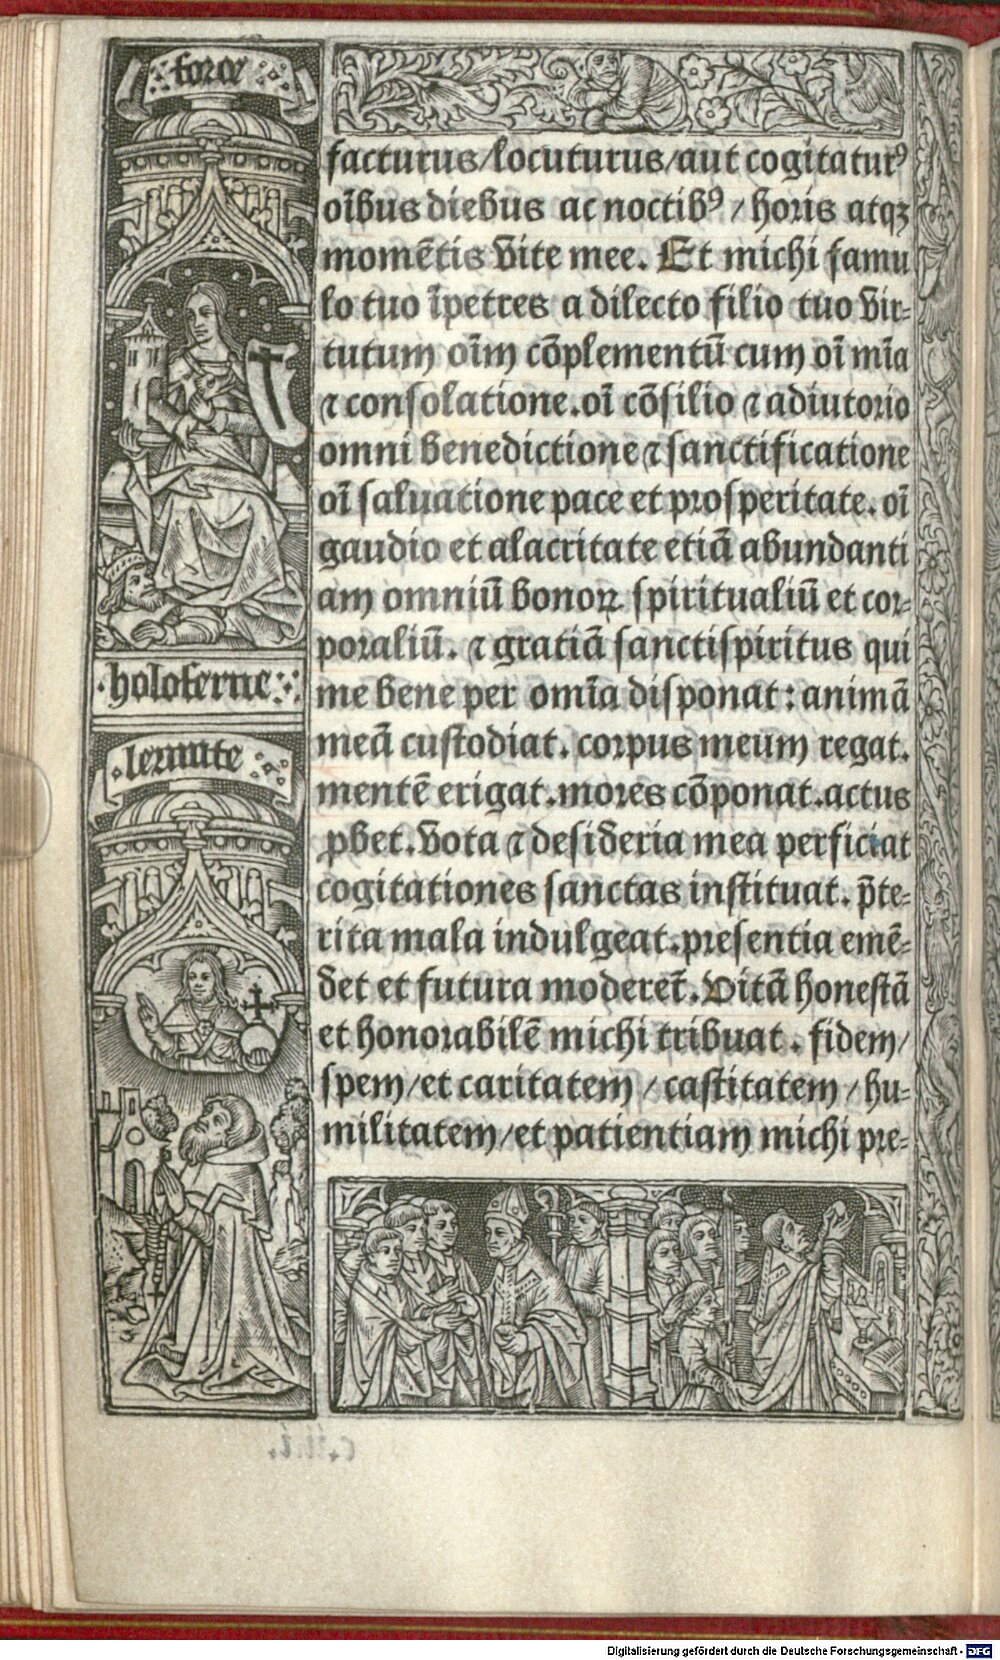 force
facturus/locuturus/aut cogitaturꝰ
oībus diebus ac noctibꝰ / horis atqꝫ
momētis vite mee. Et michi famu
lo tuo īpetres a dilecto filio tuo vir-
tutum oīm cōplementū cum oī mīa
⁊ consolatione. oī cōsilio ⁊ adiutorio
omni benedictione ⁊ sanctificatione
oī saluatione pace et prosperitate. oī
gaudio et alacritate etiā abundanti
am omniū bonoꝝ spiritualiū et cor-
poraliū. ⁊ gratiā sanctispiritus qui
me bene per omīa disponat: animā
meā custodiat. corpus meum regat.
mentē erigat. mores cōponat. actus
ꝓbet. vota ⁊ desideria mea perficiat
cogitationes sanctas instituat. p̄te-
rita mala indulgeat. presentia emē-
det et futura moderet̄. Vitā honestā
et honorabilē michi tribuat. fidem/
spem/et caritatem / castitatem / hu-
militatem/et patientiam michi pre-
holoferne
lermite
Digitalisierung gefördert durch die Deutsche Forschungsgemeinschaft - DFG